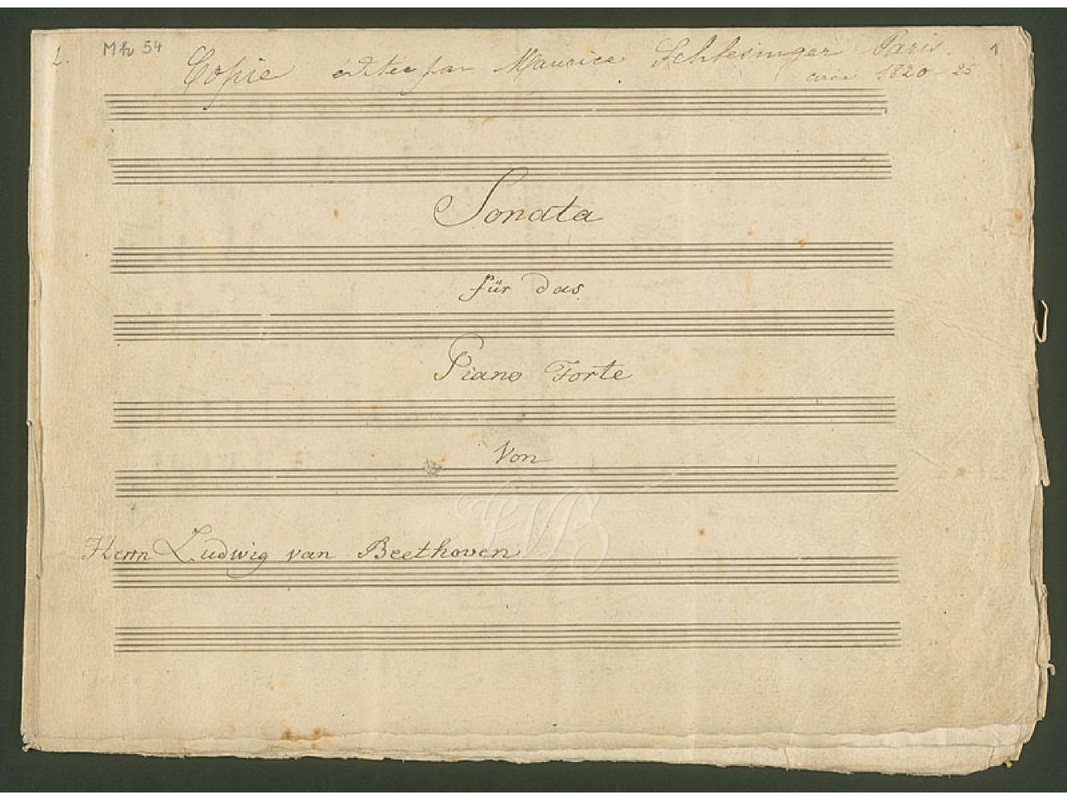 L. Mh 54 1
Copie éditée par Maurice Schlesinger Paris.
circa 1820-25
Sonata
für das
Piano Forte
Von
Herrn Ludwig van Beethoven
LVB